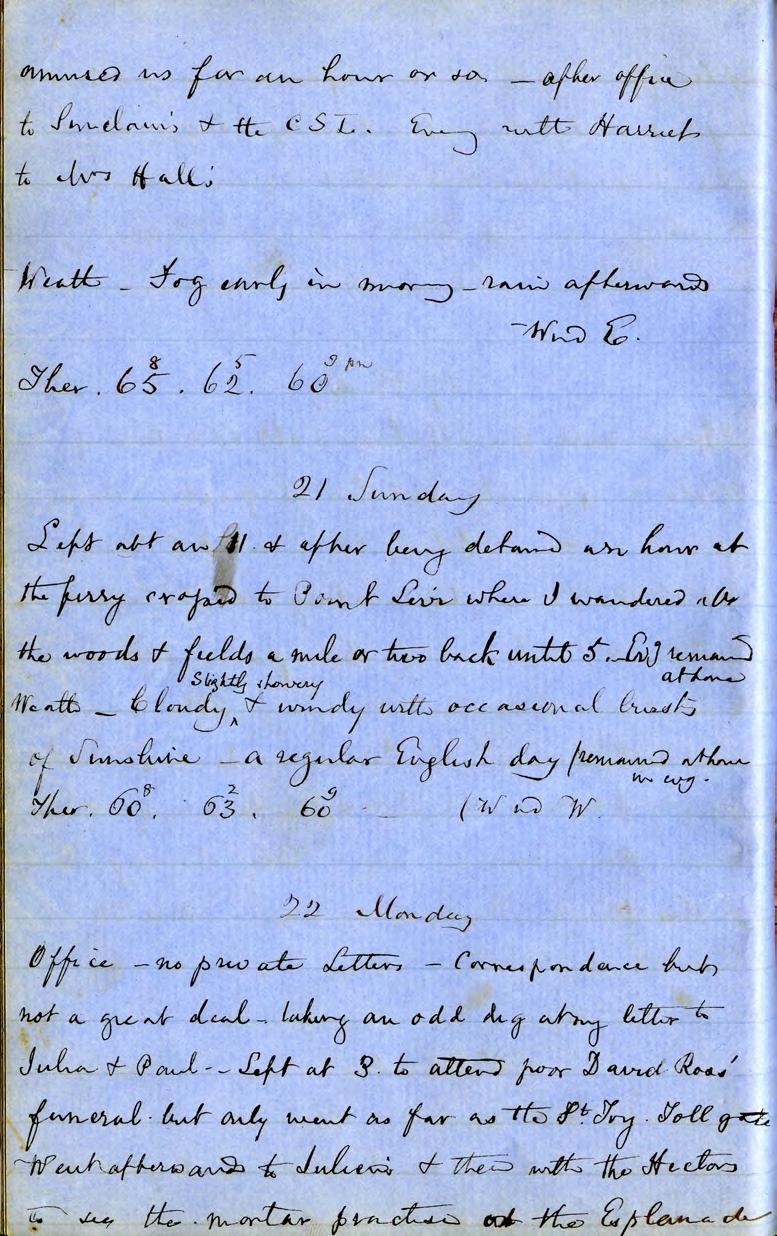 amused us for an hour or so — after office
to Sinclair's & the CSL. Eveng with Harriet
to Mrs Hall's
Weath — Fog early in morng — rain afterwards
Wind E.
Ther. 65 8. 62 5. 60 9 pm
21 Sunday
Left abt 11. & after being detand an hour at
the ferry crossed to Point Levi where I wandered abt
the woods & fields a mile or two back until 5. Evg remaind
at home
Slightly showery
Weath — Cloudy ^ & windy with occasional bursts
of Sunshine — a regular English day (remained at home
in evg.
Ther. 60 8. 63 2. 60 9 (Wind W.
22 Monday
Office — no private Letters — Correspondance but
not a great deal — taking an odd dig at my letter to
Julia & Paul — Left at 3. to attend poor David Ross'
funeral but only went as far as the St. Foy Toll gate
Went afterwards to & then with the Hectors
to see the mortar practise at the Esplanade